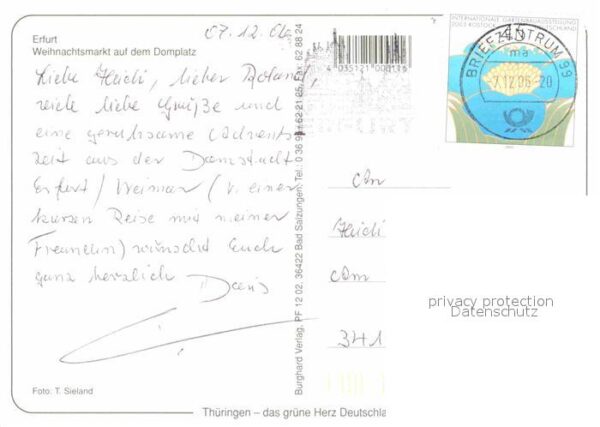 Erfurt
Weihnachtsmarkt auf dem Domplatz
07.12.06
Liebe Heidi, lieber Roland,
viele liebe Grüße und
eine geruhsame Advents
zeit aus der Domstadt
Erfurt / Weimar (v. einer
kurzen Reise mit meiner
Freundin) wünscht Euch
ganz herzlich Doris
Foto: T. Sieland
Burghard Verlag, PF 12 02, 36422 Bad Salzungen, Tel.: 0 36 9 62 21 05, Fax: 62 88 24
4 035121 000116
INTERNATIONALE GARTENBAUAUSSTELLUNG
2003 ROSTOCK
DEUTSCHLAND
45
BRIEFZENTRUM 99
ma
-7.12.06-20
An
Heidi
Am
341
privacy protection
Datenschutz
Thüringen – das grüne Herz Deutschla